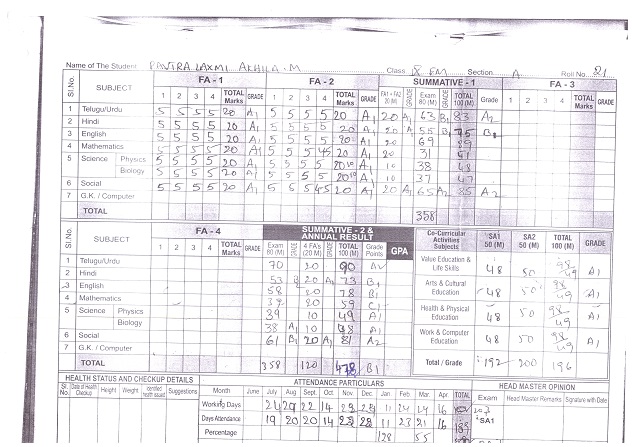 Name of The Student PAVITRA LAXMI AKHILA .M Class X EM Section A Roll No. 21
Sl.No. SUBJECT FA - 1 FA - 2 SUMMATIVE -1 FA - 3
1 2 3 4 TOTAL Marks GRADE 1 2 3 4 TOTAL Marks GRADE FA1 + FA2 20 (M) GRADE Exam 80 (M) GRADE TOTAL 100 (M) Grade 1 2 3 4 TOTAL Marks GRADE
1 Telugu/Urdu 5 5 5 5 20 A1 5 5 5 5 20 A1 20 A1 63 B1 83 A2
2 Hindi 5 5 5 5 20 A1 5 5 5 5 20 A1 20 A1 55 B1 75 B1
3 English 5 5 5 5 20 A1 5 5 5 5 20 A1 20 69 89
4 Mathematics 5 5 5 5 20 A1 5 5 5 45 20 A1 20 31 51
5 Science Physics 5 5 5 5 20 A1 5 5 5 5 20 A1 10 38 48
Biology 5 5 5 5 20 A1 5 5 5 5 20 A1 10 37 47
6 Social 5 5 5 5 20 A1 5 5 5 45 20 A1 20 A1 65 A2 85 A2
7 G.K. / Computer
TOTAL 358
Sl.No. SUBJECT FA - 4 SUMMATIVE - 2 & ANNUAL RESULT GPA
1 2 3 4 TOTAL Marks GRADE Exam 80 (M) GRADE 4 FA's (20 M) GRADE TOTAL 100 (M) Grade Points
1 Telugu/Urdu 70 20 90
2 Hindi 53 B 20 A 73 B1
3 English 58 20 78 B1
4 Mathematics 39 20 59 C1
5 Science Physics 39 10 49 A1
Biology 38 A1 10 48 A1
6 Social 61 B1 20 A1 81 A2
7 G.K. / Computer
TOTAL 358 120 478 B1
Co-Curricular Activities Subjects SA1 50 (M) SA2 50 (M) TOTAL 100 (M) GRADE
Value Education & Life Skills 48 50 98 49 A1
Arts & Cultural Education 48 50 98 49 A1
Health & Physical Education 48 50 98 49 A1
Work & Computer Education 48 50 98 49 A1
Total / Grade 192 200 196
HEALTH STATUS AND CHECKUP DETAILS ATTENDANCE PARTICULARS HEAD MASTER OPINION
Sl. No. Date of Health Checkup Height Weight Suggestions Month June July Aug. Sept. Oct. Nov. Dec. Jan. Feb. Mar. Apr. TOTAL Exam Head Master Remarks Signature with Date
Working Days 24 22 14 11 24 24 16 207
Days Attendance 19 20 20 14 23 28 11 23 21 16 SA1
Percentage 128 55